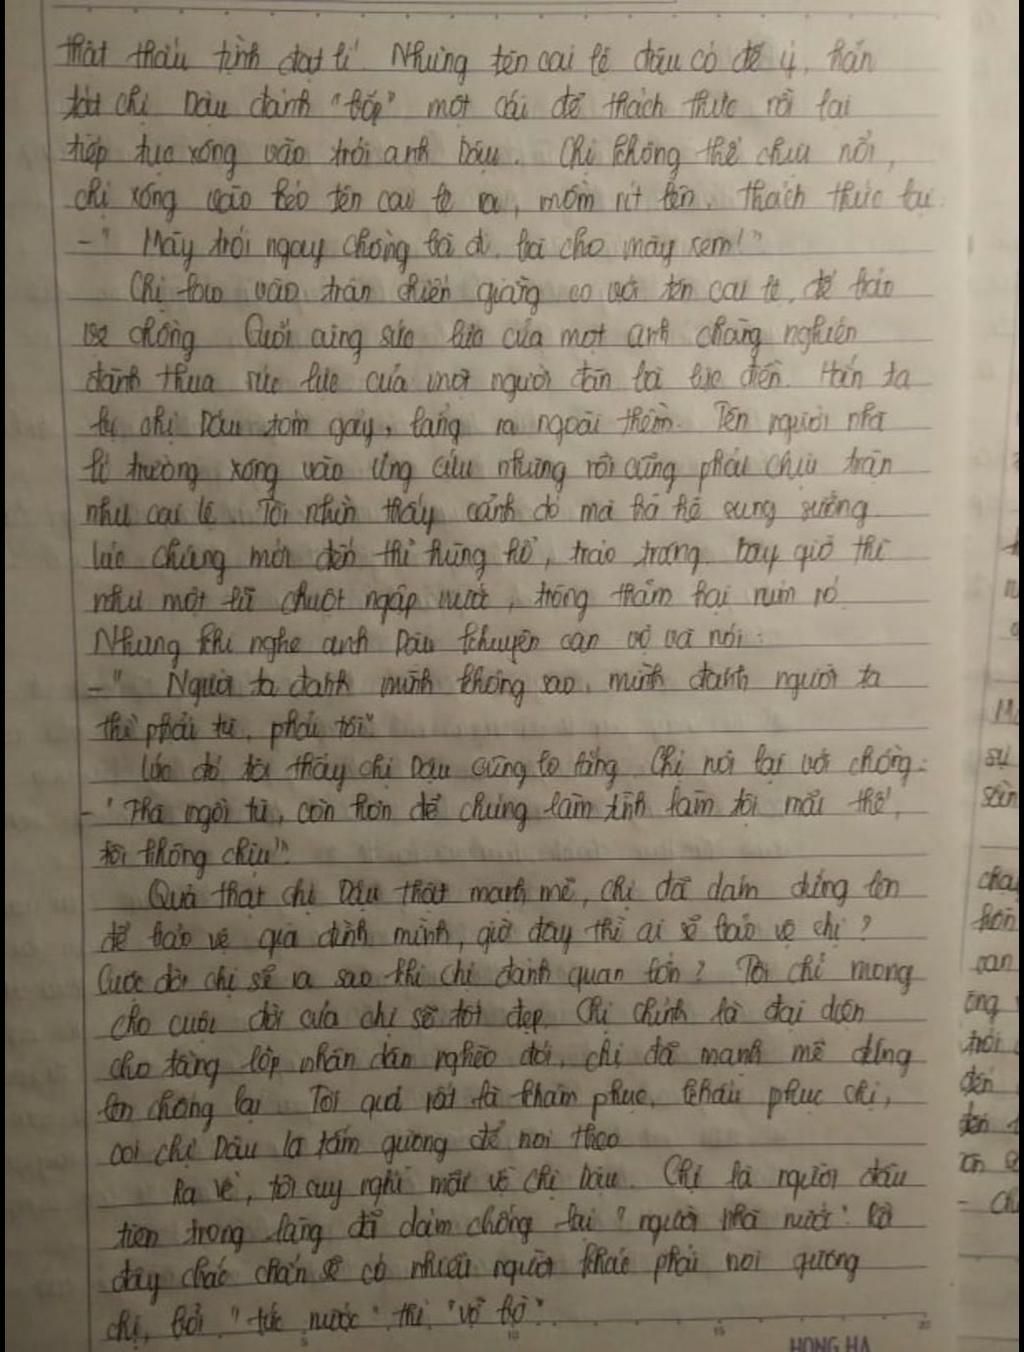 thật thấu tình đạt lí. Nhưng tên cai lệ đâu có để ý, hắn
tát chị Dậu đánh "bốp" một cái để thách thức rồi lại
tiếp tục xông vào trói anh Dậu. Chị không thể chịu nổi,
chị xông vào kéo tên cai lệ ra, mồm rít lên, thách thức lại:
-" Mày trói ngay chồng bà đi, bà cho mày xem!"
Chị lao vào trận chiến giằng co với tên cai lệ, để bảo
vệ chồng. Cuối cùng sức lực của một anh chàng nghiện
đành thua sức lực của một người đàn bà lực điền. Hắn ta
bị chị Dậu tóm gáy, lẳng ra ngoài thềm. Tên người nhà
lí trưởng xông vào ứng cứu nhưng rồi cũng phải chịu trận
như cai lệ. Tôi nhìn thấy cảnh đó mà hả hê sung sướng
lúc chúng mới đến thì hùng hổ, tráo trưng bay giờ thì
như một lũ chuột ngập nước, trông thảm hại rúm ró
Nhưng khi nghe anh Dậu khuyên can vợ và nói:
-" Người ta đánh mình không sao, mình đánh người ta
thì phải tù, phải tội"
Lúc đó tôi thấy chị Dậu cũng lo lắng. Chị nói lại với chồng:
-"Thà ngồi tù, còn hơn để chúng làm tình làm tội mãi thế,
tôi không chịu".
Quả thật chị Dậu thật mạnh mẽ, chị đã dám đứng lên
để bảo vệ gia đình mình, giờ đây thì ai sẽ bảo vệ chị?
Cuộc đời chị sẽ ra sao khi chị đánh quan lớn? Tôi chỉ mong
cho cuộc đời của chị sẽ tốt đẹp. Chị chính là đại diện
cho tầng lớp nhân dân nghèo đói, chị đã mạnh mẽ đứng
lên chống lại. Tôi quả rất là khâm phục, khâu phục chị,
coi chị Dậu là tấm gương để noi theo
Ra về, tôi suy nghĩ mãi về chị Dậu. Chị là người đầu
tiên trong làng đã dám chống lại "người nhà nước".
đây chắc chắn sẽ có nhiều người khác phải noi gương
chị, bởi "tức nước" thì "vỡ bờ".
5 10 15 20
HONG HA